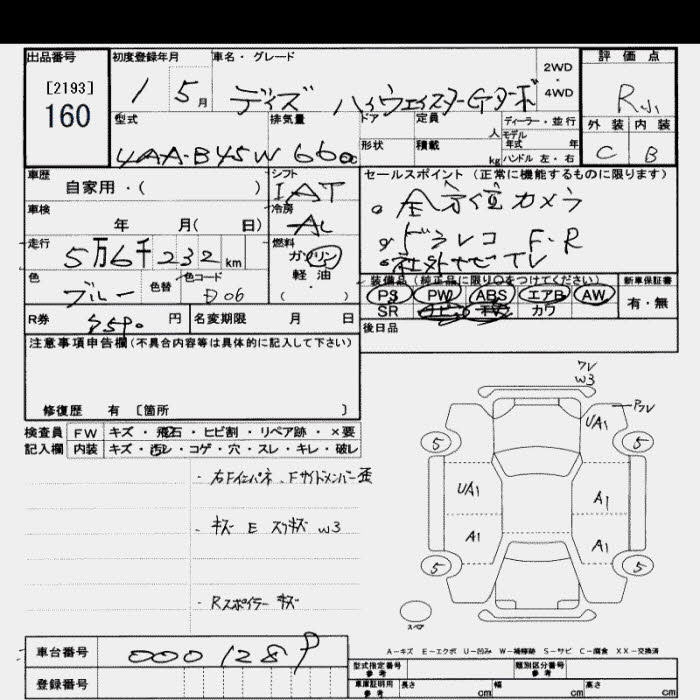 出品番号
[2193]
160
初度登録年月
1 5 月
車名・グレード
デイズ ハイウェイスターGターボ
2WD
・
4WD
評価点
R小
外装 内装
C B
型式
4AA-B45W
排気量
660cc
ドア 定員 人
形状 積載 kg
ディーラー・並行
モデル
年式 年
ハンドル 左・右
車歴
自家用・( )
シフト
IAT
車検
年 月( 日)
冷房
AC
走行
5万6千232 km
燃料
ガソリン
軽油
( ・ )
色
ブルー
色替
色コード
セールスポイント (正常に機能するものに限ります)
。全方位カメラ
。ドラレコ F・R
・社外ナビTV
装備品 (純正品に限り○をつけてください)
PS PW ABS エアB AW
SR ナビ TV カワ
新車保証書
有・無
後日品
R券 円
名変期限 月 日
注意事項申告欄 (不具合内容等は具体的に記入して下さい)
修復歴 有 [箇所 ]
検査員 FW キズ・飛石・ヒビ割・リペア跡・×要
記入欄 内装 キズ・汚レ・コゲ・穴・スレ・キレ・破レ
・右Fインパネ、Fサイドメンバー歪
・キズ E スリキズ W3
・Rスポイラー キズ
ワレ
W3
UA1
5 5
UA1 A1
A1 A1
5 5
スペア
A-キズ E-エクボ U-凹み W-補修跡 S-サビ C-腐食 XX-交換済
車台番号
登録番号
型式指定番号
参考
類別区分番号
参考
車庫証明用
参考
長さ cm 幅 cm 高さ cm